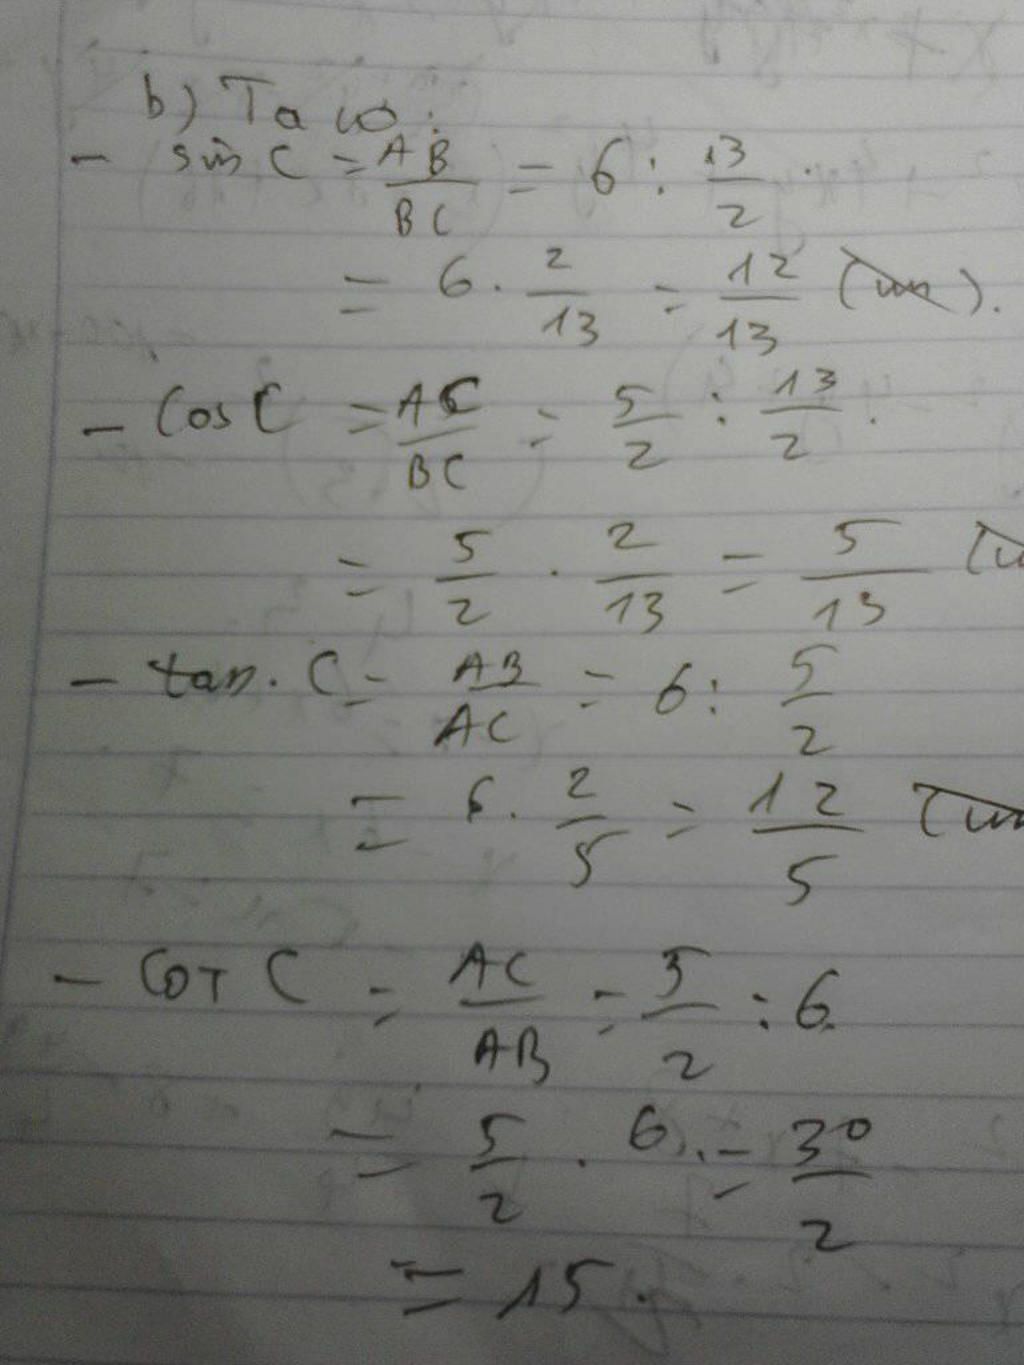 b) Ta có:
- sin C = AB/BC = 6 : 13/2
= 6 . 2/13 = 12/13
- Cos C = AC/BC = 5/2 : 13/2.
= 5/2 . 2/13 = 5/13
- tan. C = AB/AC = 6 : 5/2
= 6. 2/5 = 12/5
- COT C = AC/AB = 5/2 : 6.
= 5/2 . 6 = 30/2
= 15.